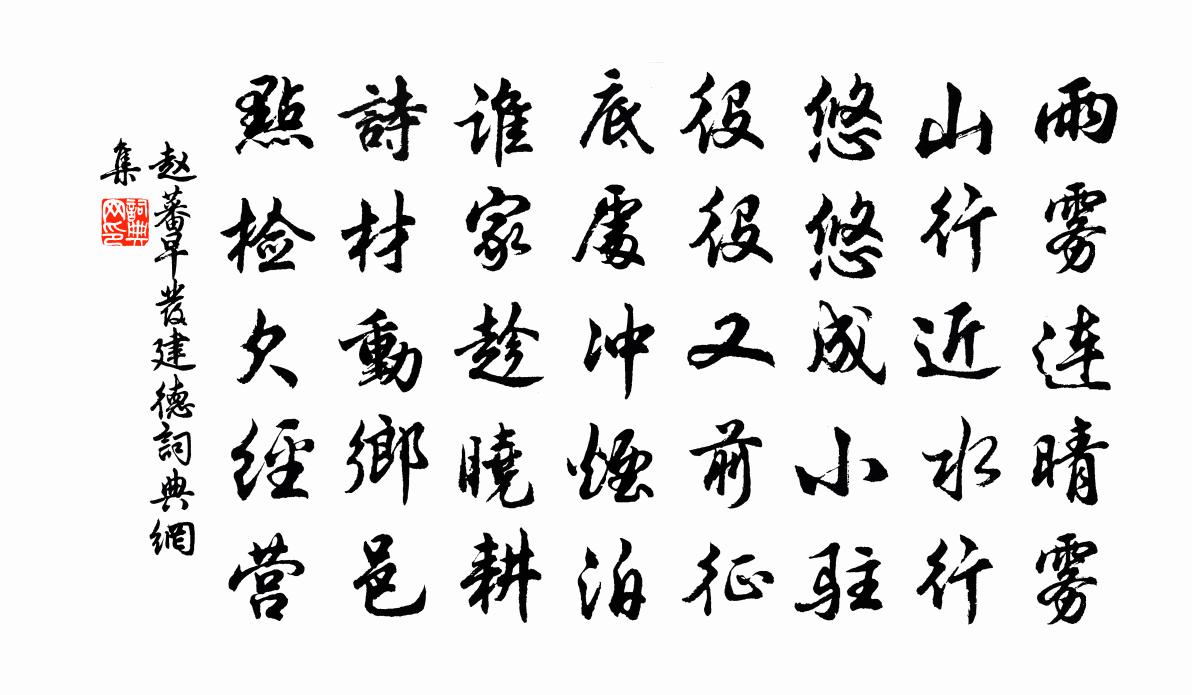 雨雾连晴雾
山行近水行
悠悠成小驻
役役又前征
底處冲煙泊
谁家趁曉耕
詩材動鄉邑
點检欠经营
赵蕃早发建德詞典網
集
詞典网印